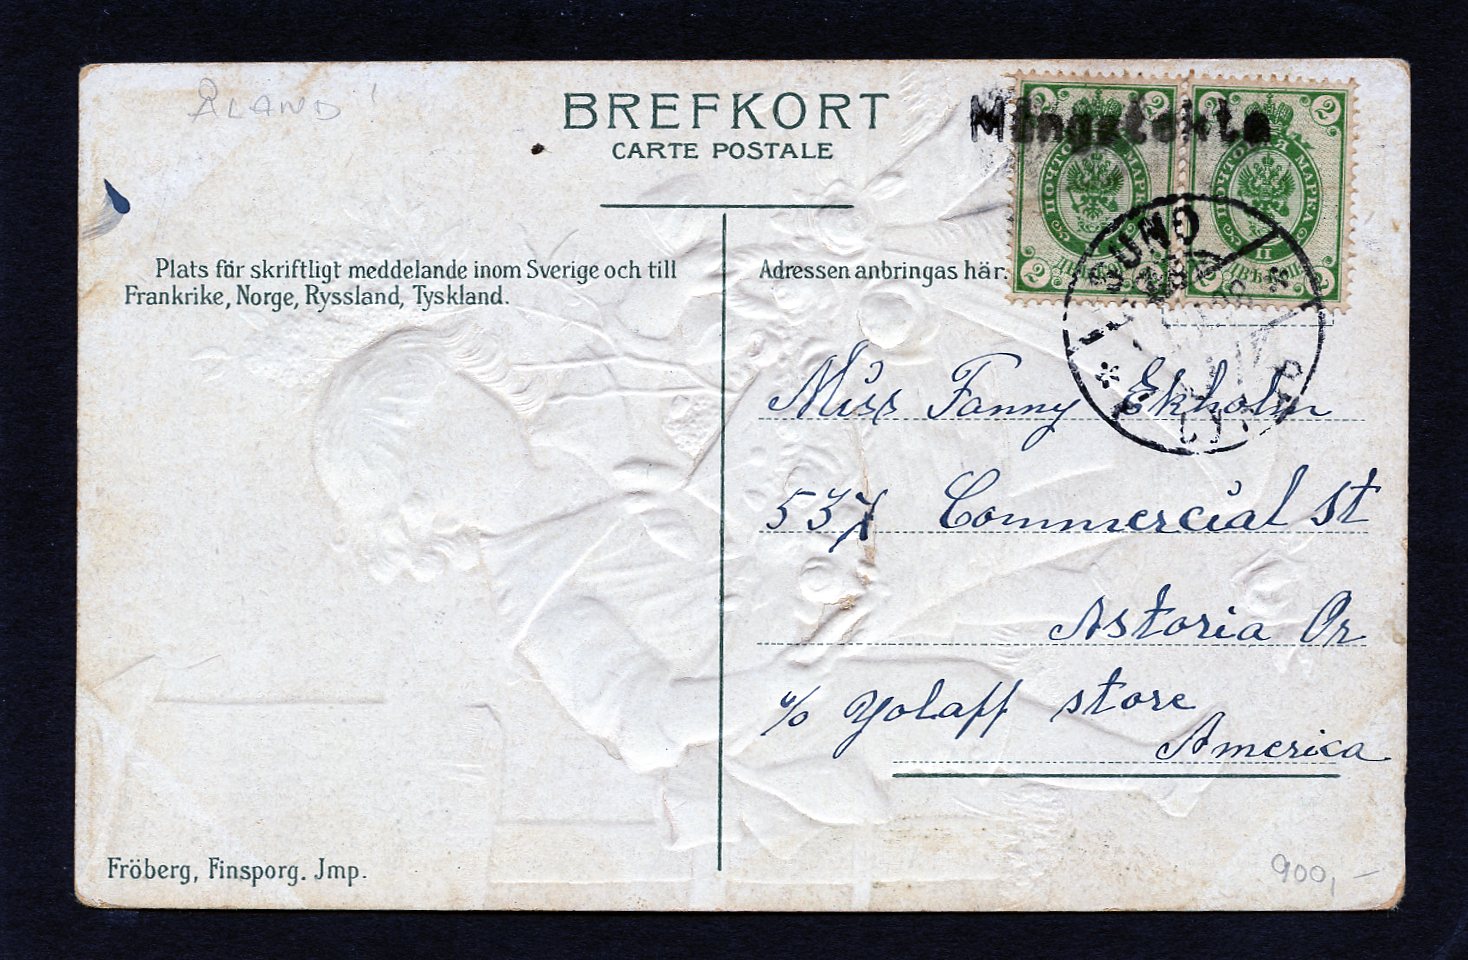 ÅLAND!
BREFKORT
CARTE POSTALE
Mångstekta
2 2 2 2
ПОЧТОВАЯ МАРКА
SUND
Plats för skriftligt meddelande inom Sverige och till
Frankrike, Norge, Ryssland, Tyskland.
Adressen anbringas här.
Miss Fanny Ekholm
537 Commercial St
Astoria Or
c/o Yolaff store
America
Fröberg, Finsporg. Jmp.
900,-